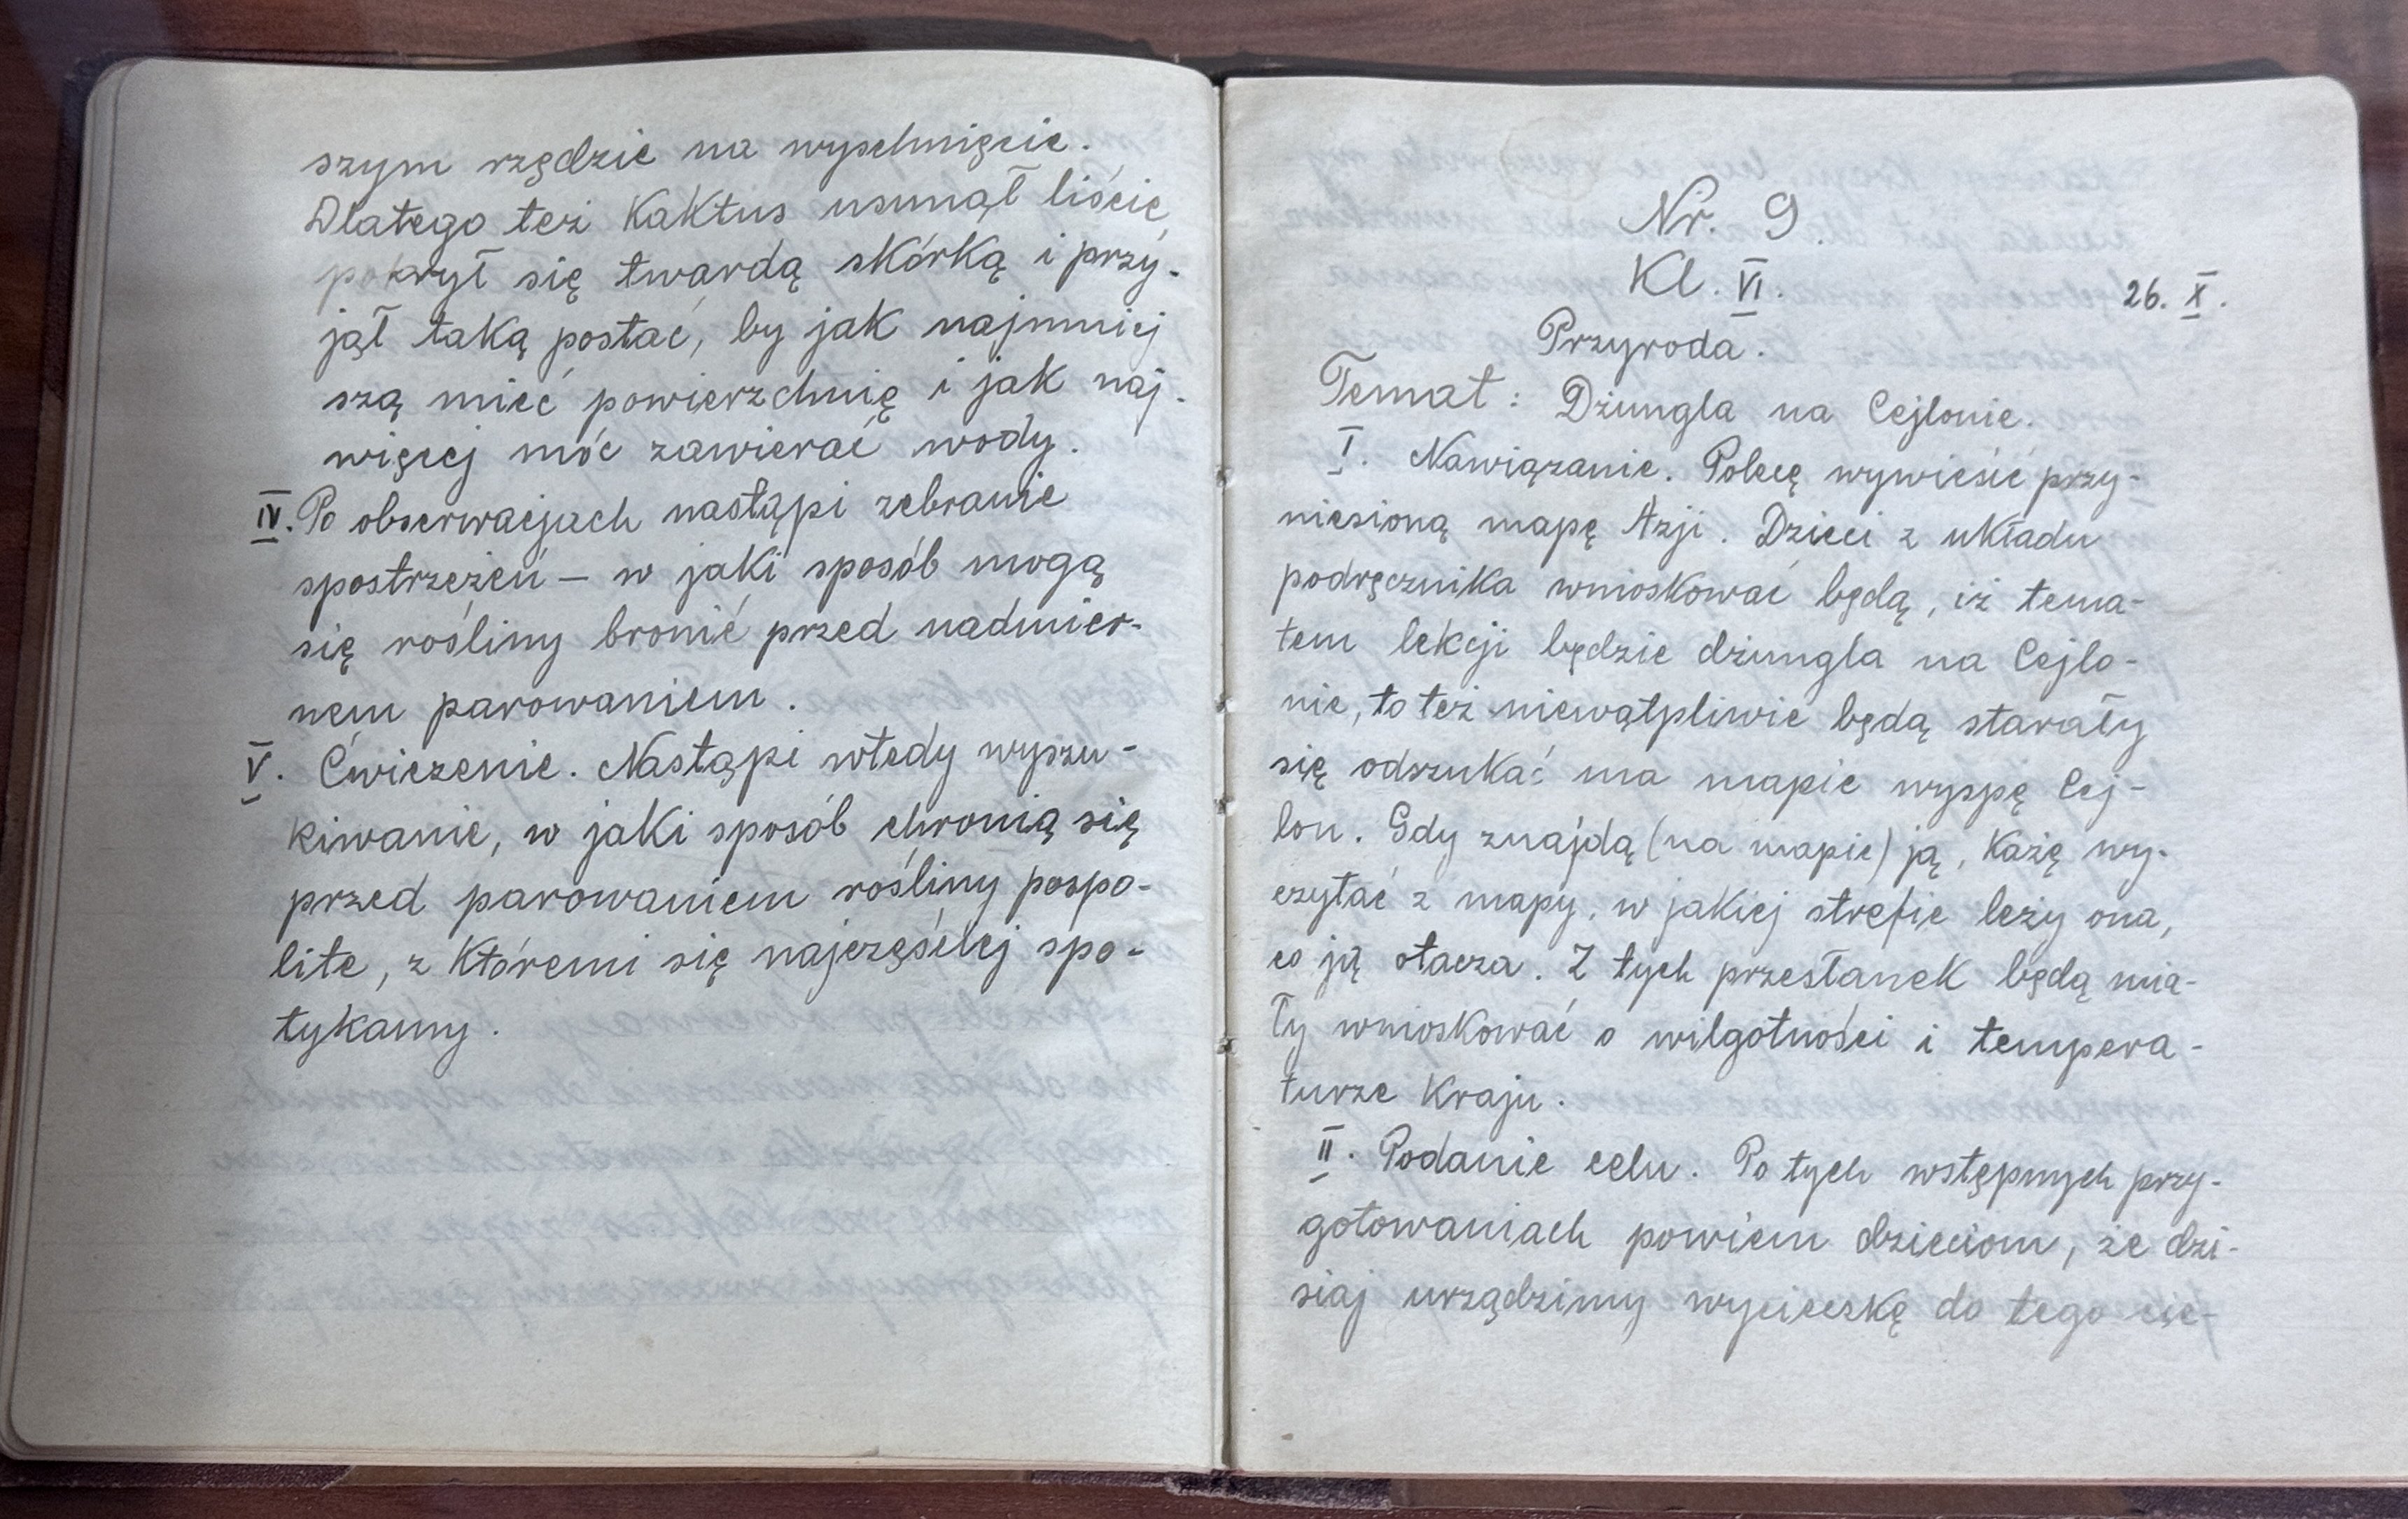 szym rzędzie na wyschnięcie.
Dlatego też kaktus usunął liście,
pokrył się twardą skórką i przy-
jął taką postać, by jak najmniej
szą mieć powierzchnię i jak naj-
więcej móc zawierać wody.
IV. Po obserwacjach nastąpi zebranie
spostrzeżeń – w jaki sposób mogą
się rośliny bronić przed nadmier-
nem parowaniem.
V. Ćwiczenie. Nastąpi wtedy wyszu-
kiwanie, w jaki sposób chronią się
przed parowaniem rośliny pospo-
lite, z któremi się najczęściej spo-
tykamy.
Nr. 9.
Kl. VI.
26. X.
Przyroda.
Temat: Dżungla na Cejlonie.
I. Nawiązanie. Polecę wywiesić przy-
niesioną mapę Azji. Dzieci z układu
podręcznika wnioskować będą, iż tema-
tem lekcji będzie dżungla na Cejlo-
nie, to też niewątpliwie będą starały
się odszukać na mapie wyspę Cej-
lon. Gdy znajdą (na mapie) ją, każę wy-
czytać z mapy, w jakiej strefie leży ona,
co ją otacza. Z tych przesłanek będą mia-
ły wnioskować o wilgotności i tempera-
turze kraju.
II. Podanie celu. Po tych wstępnych przy-
gotowaniach powiem dzieciom, że dzi-
siaj urządzimy wycieczkę do tego cie-